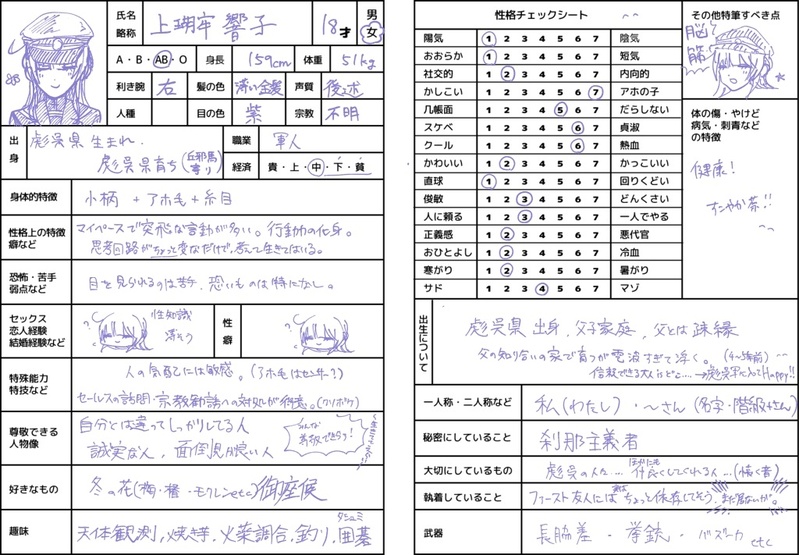 氏名
略称
上瑚牢 響子
18才
男
女
A・B・AB・O
身長
159cm
体重
51kg
利き腕
右
髪の色
薄い金髪
声質
後述
人種
目の色
紫
宗教
不明
出身
彪呉県生まれ、
彪呉県育ち(丘邪馬寄り)
職業
軍人
経済
貴・上・中・下・貧
身体的特徴
小柄 + アホ毛 + 糸目
性格上の特徴
癖など
マイペースで突飛な言動が多い。行動力の化身。
思考回路がちょっと変なだけで、考えて生きてはいる。
恐怖・苦手
弱点など
目を見られるのは苦手、恐いものは特になし。
セックス
恋人経験
結婚経験など
性知識
薄そう
性癖
特殊能力
特技など
人の気配には敏感。(アホ毛はセンサー?)
セールスの訪問・宗教勧誘への対処が得意。(ゴリボケ)
尊敬できる
人物像
自分とは違ってしっかりしてる人
誠実な人、面倒見が良い人
みんな
尊敬できちゃう!
好きなもの
冬の花(梅・椿・モクレンetc)御座候
趣味
天体観測、焼き芋、火薬調合、釣り、囲碁
タシュミ
性格チェックシート
陽気 1 2 3 4 5 6 7 陰気
おおらか 1 2 3 4 5 6 7 短気
社交的 1 2 3 4 5 6 7 内向的
かしこい 1 2 3 4 5 6 7 アホの子
几帳面 1 2 3 4 5 6 7 だらしない
スケベ 1 2 3 4 5 6 7 貞淑
クール 1 2 3 4 5 6 7 熱血
かわいい 1 2 3 4 5 6 7 かっこいい
直球 1 2 3 4 5 6 7 回りくどい
俊敏 1 2 3 4 5 6 7 どんくさい
人に頼る 1 2 3 4 5 6 7 一人でやる
正義感 1 2 3 4 5 6 7 悪代官
おひとよし 1 2 3 4 5 6 7 冷血
寒がり 1 2 3 4 5 6 7 暑がり
サド 1 2 3 4 5 6 7 マゾ
その他特筆すべき点
脳筋
体の傷・やけど
病気・刺青など
の特徴
健康!
すこやか茶!!
出生について
彪呉県出身、父子家庭、父とは疎縁
父の知り合いの家で育つが電波すぎて浮く。
信頼できる大人はどこ…→彪呉軍に入ってHappy!!
一人称・二人称など
私(わたし)・〜さん(名字・階級+さん)
秘密にしていること
刹那主義者
大切にしているもの
彪呉の人々… 仲良くしてくれる人…
執着していること
ファースト友人にはちょっと依存してそう、まだ居ないが。
武器
長脇差・拳銃・バズーカ etc